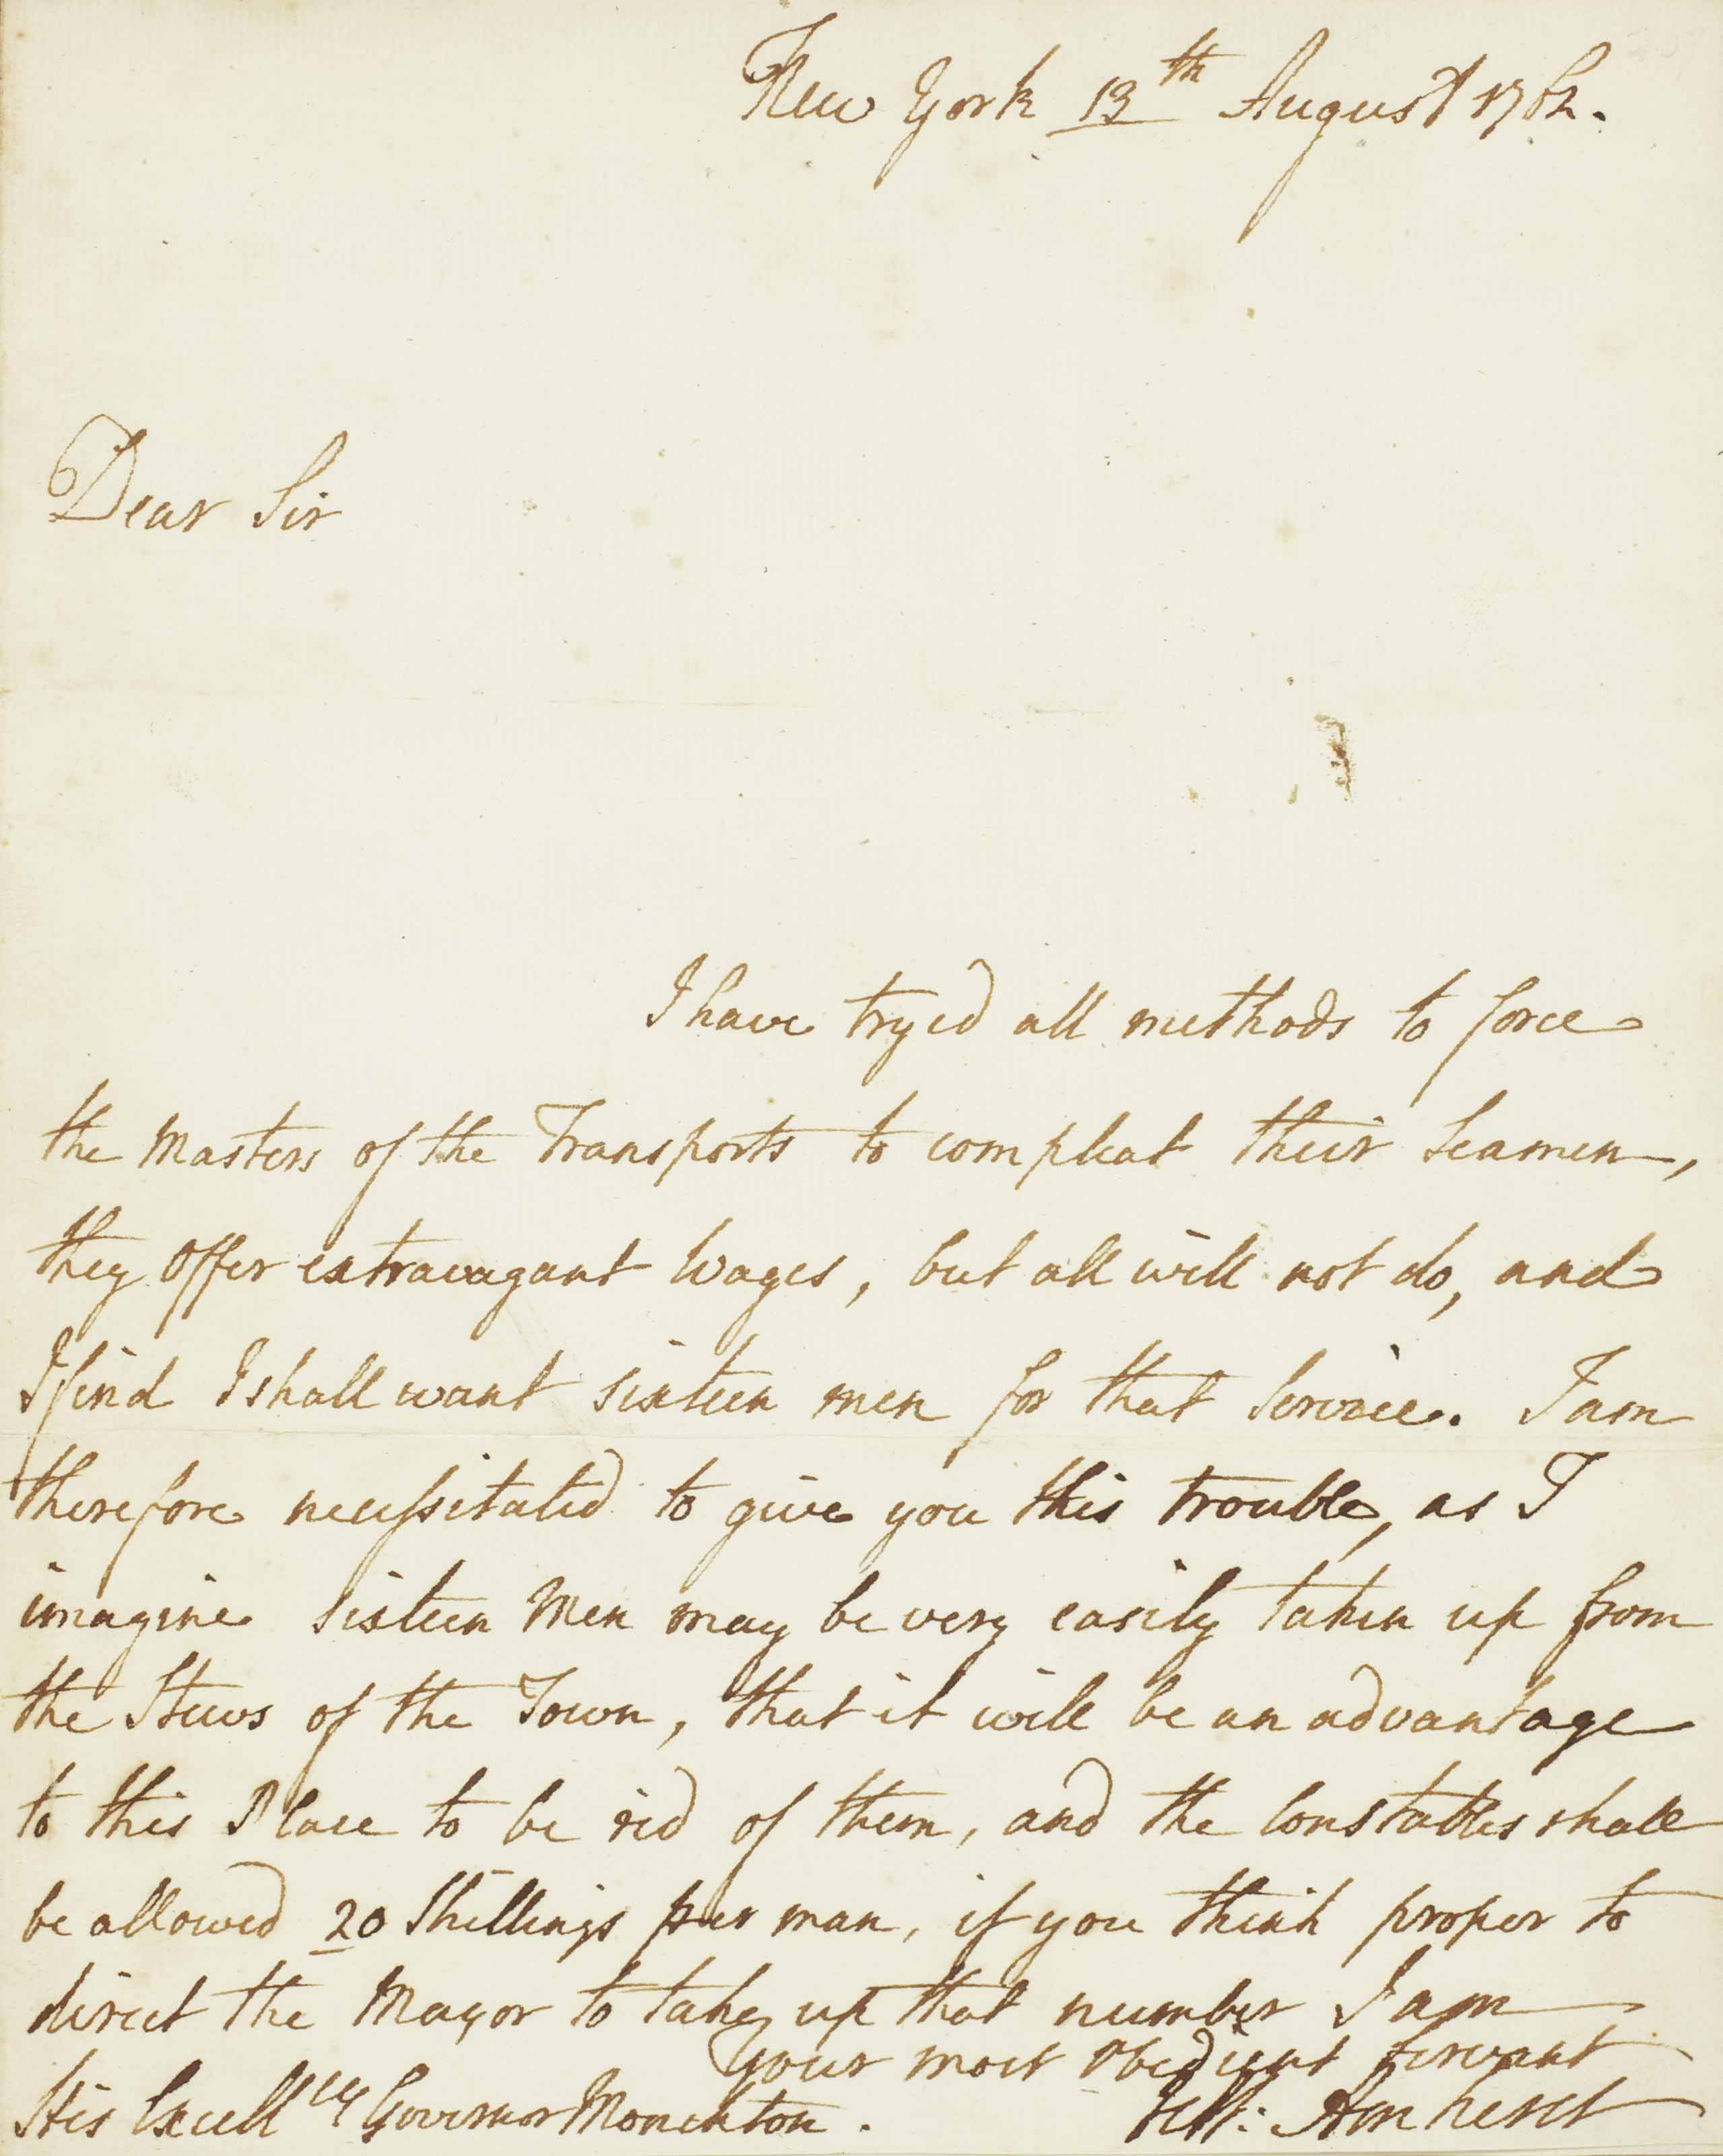 New York 13th August 1762.
Dear Sir
I have tryed all methods to force
the Masters of the Transports to compleat their Seamen,
they offer extravagant Wages, but all will not do, and
I find I shall want sixteen men for that Service. I am
therefore necessitated to give you this trouble, as I
imagine sixteen Men may be very easily taken up from
the Stews of the Town, that it will be an advantage
to this Place to be rid of them, and the Constables shall
be allowed 20 Shillings per man, if you think proper to
direct the Mayor to take up that number I am
Your most Obedient Servant
His Excellcy Governor Monckton.
Jeff: Amherst